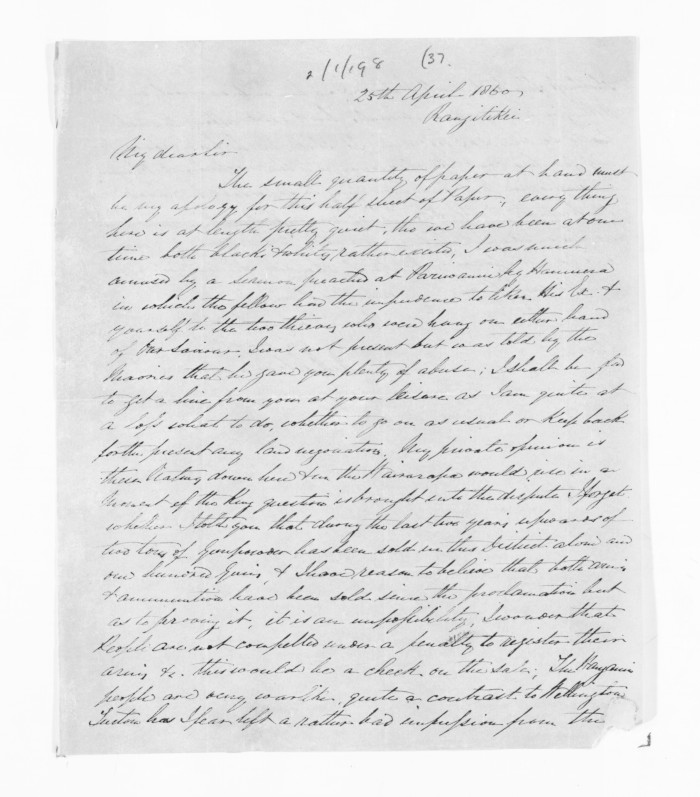 (37.
25th April 1860
Rangitikei
My dear Sir
The small quantity of paper at hand must
be my apology for this half sheet of Paper, everything
here is at length pretty quiet, tho we have been at one
time both blacks & whites, rather excited, I was much
amused by a Sermon preached at by
in which the fellow had the impudence to liken His Ex. &
yourself to the two thieves who were hung on either hand
of Our Saviour I was not present but was told by the
Maories that he gave you plenty of abuse; I shall be glad
to get a line from you at your leisure as I am quite at
a loss what to do, whether to go on as usual or keep back
for the present any land negociation. My private opinion is
these Natives down here & in the Wairarapa would rise in a
moment if the King question is brought into the dispute I forget
whether I told you that during the last two years upwards of
two tons of Gunpowder has been sold in this District alone and
one hundred Guns, & I have reason to believe that both arms
& ammunition have been sold since the proclamation but
as to proving it, it is an impossibility, I wonder that
People are not compelled under a penalty to register their
arms &c. this would be a check on the sale; The
people are very warlike, quite a contrast to Wellington
has I fear left a rather bad impression from the